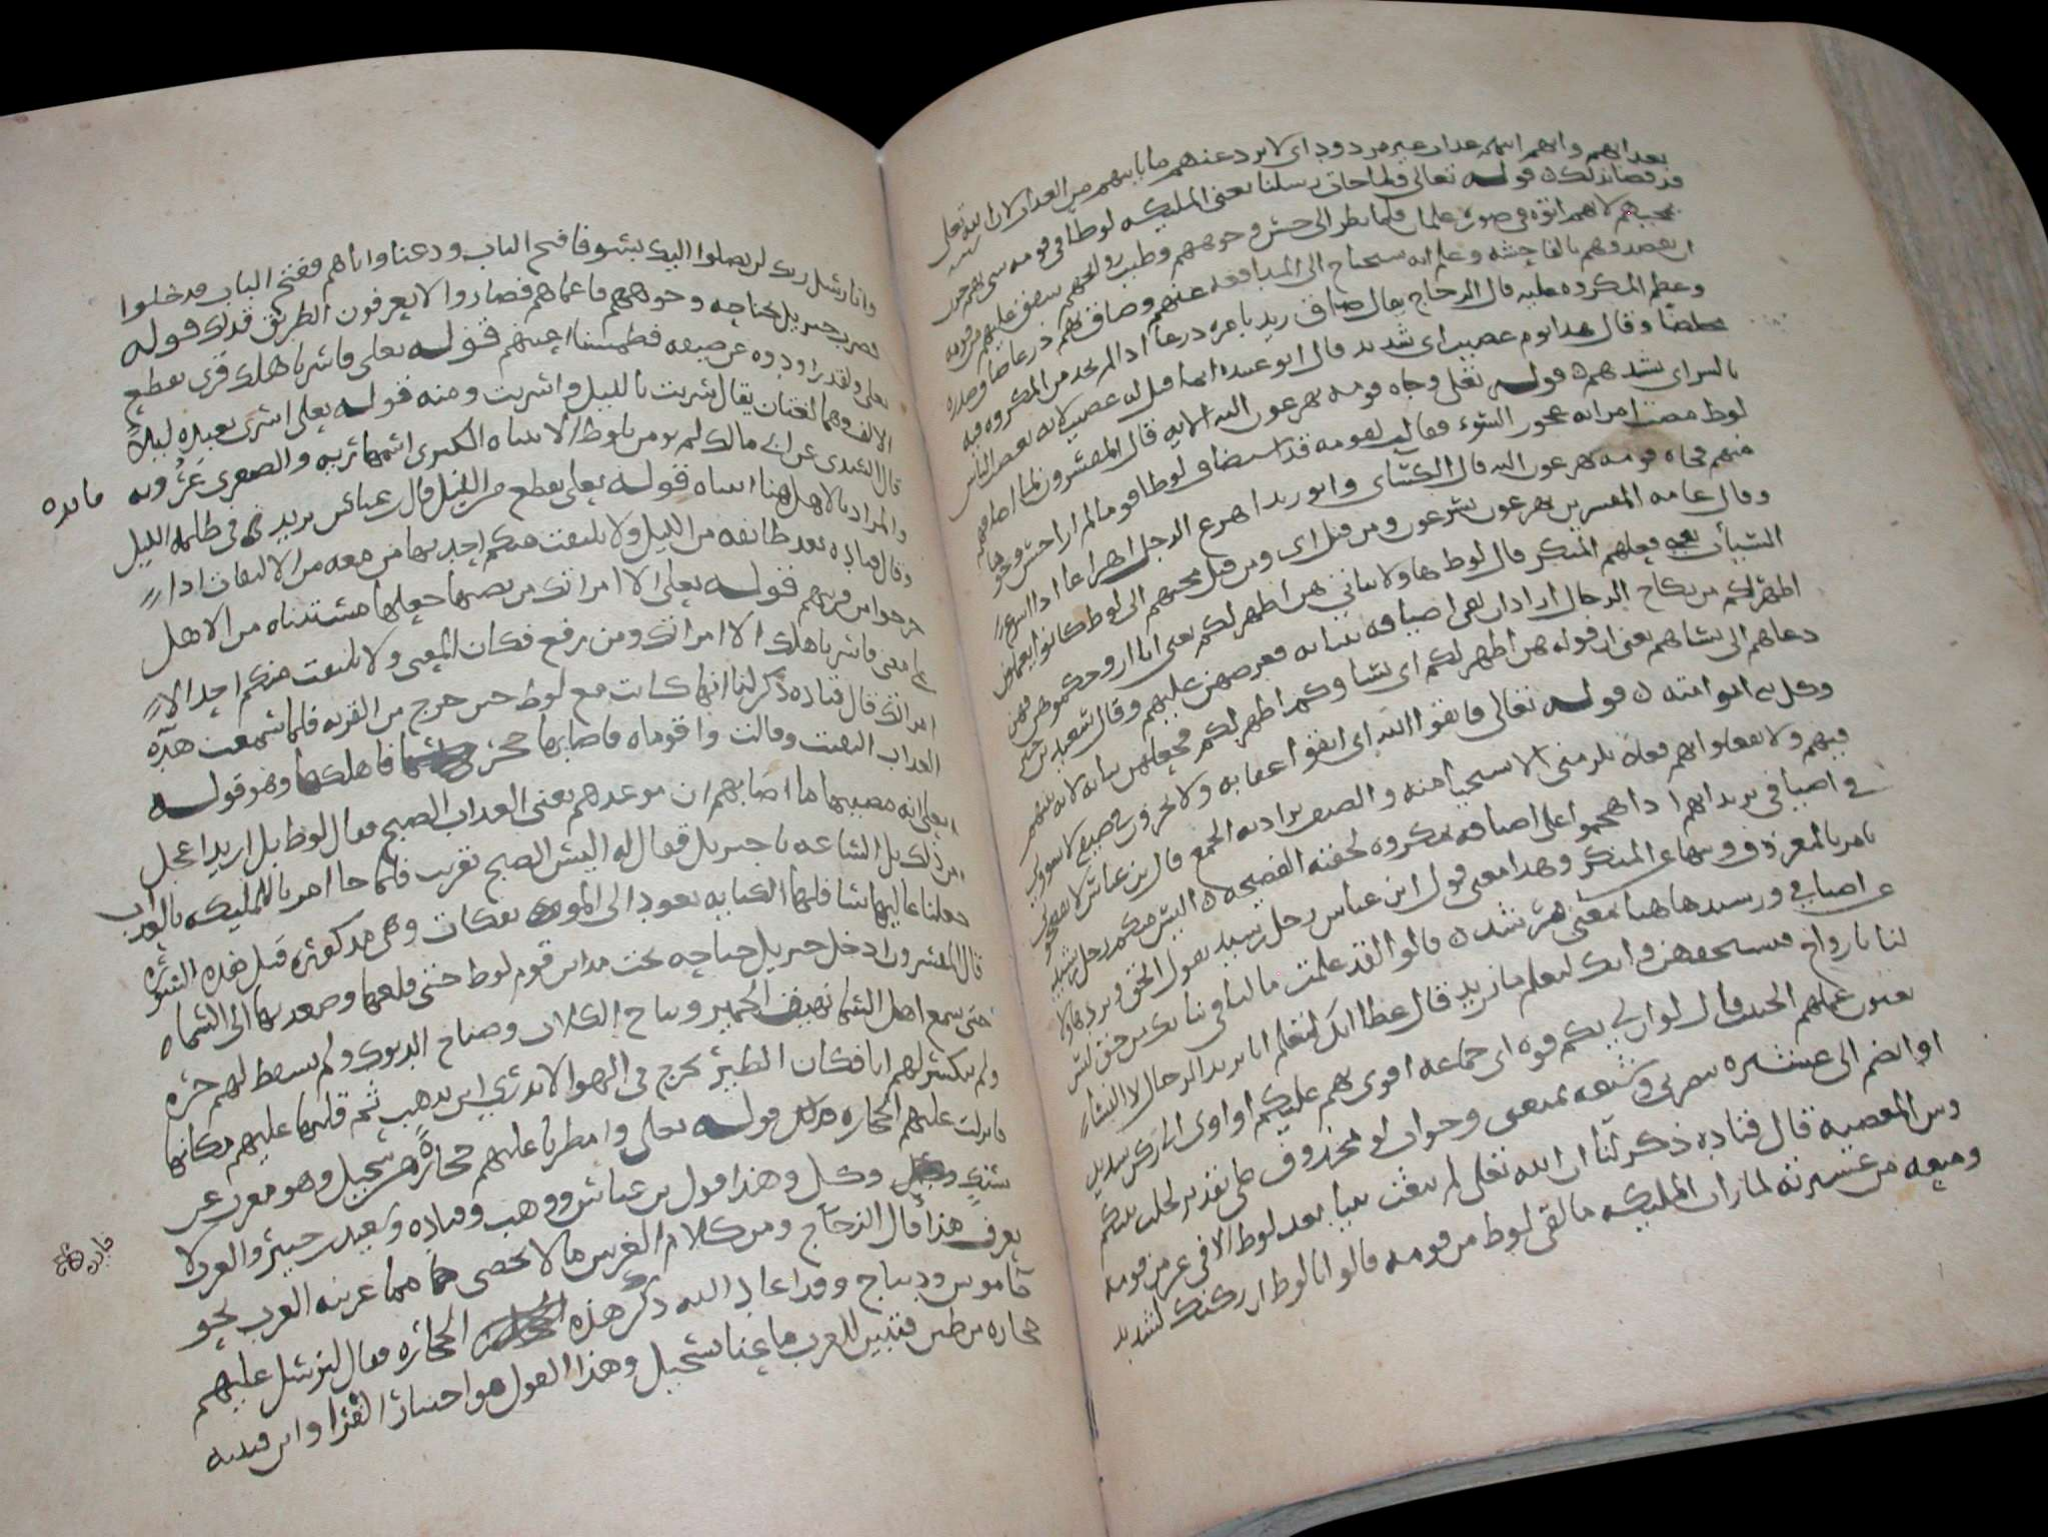 بعذابهم وانهم اتيهم عذاب غير مردود اى لا يرد عنهم ما ياتيهم من العذاب لان الله تعالى
قد قضا ذلك قوله تعالى فلما جات رسلنا يعنى المليكه لوطا فى قومه سى بهم حزن
بمجيهم لانهم اتوه فى صوره غلمان فلما نظر الى حسن وجوههم وطيب روائحهم شفق عليهم من قومه
ان يقصدوهم بالفاحشه وعلم انه سيحتاج الى المدافعه عنهم وضاق بهم ذرعا ضاق صدره
وعظم المكروه عليه قال الزجاج يقال ضاق زيد بامره ذرعا اذا لم يجد من المكروه فيه
مخلصا وقال هذا يوم عصيب اى شديد قال ابو عبيده انما قيل له عصيب لانه يعصب الناس
بالشر اى يشدهم قوله تعالى وجاه قومه يهرعون اليه الايه قال المفسرون لما اضافهم
لوط مضت امراته عجوز السوء فقالت لقومه قد استضاف لوطا قوم لم ار احسن وجوها
منهم فجاه قومه يهرعون اليه قال الكسائى وابو زيد اهرع الرجل اهراعا اذا اسرع
وقال عامه المفسرين يهرعون يسرعون ومن قبل اى ومن قبل مجيهم الى لوط كانوا يعملون
السيات يعنى فعلهم المنكر قال لوط هاولا بناتى هن اطهر لكم يعنى انا ازوجكموهن فهن
اطهر لكم من نكاح الرجال اراد ان يقى اضيافه ببناته فعرضهن عليهم وقال سعيد بن جبير
دعاهم الى نسائهم يعنى ان قوله هن اطهر لكم اى نساوكم اطهر لكم فجعلهن بناته لانه نبيهم
وكل نبى ابو امته قوله تعالى فاتقوا الله اى اتقوا عقابه ولا تخزون فى ضيفى لا تسوونى
فيهم ولا تفعلوا بهم فعلا يلزمنى الاستحيا منه والضيف يراد به الجمع قال ابن عباس لا تفضحونى
فى اضيافى يريد انهم اذا هجموا على اضيافه بمكروه لحقته الفضيحه اليس منكم رجل رشيد
يامر بالمعروف وينها عن المنكر وهذا معنى قول ابن عباس رجل رشيد يقول الحق ويرد هاولا
عن اضيافى ورشيد هاهنا بمعنى مرشد قالوا لقد علمت ما لنا فى بناتك من حق لسن
لنا بازواج فنستحقهن وانك لتعلم ما نريد قال عطا انك لتعلم انا نريد الرجال لا النساء
يعنون عملهم الخبيث قال لو ان لى بكم قوه اى جماعه اقوى بهم عليكم او اوى الى ركن شديد
او انضم الى عشيره تنصرنى وشيعه تمنعنى وجواب لو محذوف على تقدير لحلت بينكم
وبين المعصيه قال قتاده ذكر لنا ان الله تعالى لم يبعث نبيا بعد لوط الا فى عز من قومه
ومنعه من عشيرته لما رات المليكه ما لقى لوط من قومه قالوا يا لوط ان ركنك لشديد
وانا رسل ربك لن يصلوا اليك بسو فافتح الباب ودعنا واياهم ففتح الباب فدخلوا
فضرب جبريل بجناحه وجوههم فاعماهم فصاروا لا يعرفون الطريق فذلك قوله
تعالى ولقد راودوه عن ضيفه فطمسنا اعينهم قوله تعالى فاسر باهلك قرى بقطع
الالف وهما لغتان يقال سريت بالليل واسريت ومنه قوله تعالى اسرى بعبده ليلا
قال السدى عن ابى مالك لم يومن بلوط الا ابنتاه الكبرى اسمها ريه والصغرى عروبه
والمراد بالاهل هنا ابنتاه قوله تعالى بقطع من الليل قال ابن عباس يريد فى ظلمه الليل
وقال قتاده بعد طائفه من الليل ولا يلتفت منكم احد نهى من معه من الالتفات اذا
خرجوا من قريتهم قوله تعالى الا امراتك من نصبها جعلها مستثناه من الاهل
على معنى فاسر باهلك الا امراتك ومن رفع فكان المعنى ولا يلتفت منكم احد الا
امراتك قال قتاده ذكر لنا انها كانت مع لوط حين خرج من القريه فلما سمعت هده
العذاب التفتت وقالت وا قوماه فاصابها حجر فاهلكها وهو قوله
تعالى انه مصيبها ما اصابهم ان موعدهم يعنى العذاب الصبح فقال لوط بل اريد اعجل
من ذلك بل الساعه يا جبريل فقال له اليس الصبح بقريب فلما جا امرنا للمليكه بالعذاب
جعلنا عاليها سافلها الكنايه تعود الى الموتفكات وهى مذكوره قبل هذه السوره
قال المفسرون ادخل جبريل جناحه تحت مداين قوم لوط حتى قلعها وصعد بها الى السماء
حتى سمع اهل السما نهيق الحمير ونباح الكلاب وصياح الديوك ولم يسقط لهم جره
ولم ينكسر لهم انا فكان الطير يخرج فى الهوا لا يدرى اين يذهب ثم قلبها عليهم مكانها
فانزلت عليهم الحجاره فذلك قوله تعالى وامطرنا عليهم حجاره من سجيل وهو معرب عن
سنك وكل وهذا قول ابن عباس ووهب وقتاده وسعيد بن جبير والعرب لا
يعرف هذا قال الزجاج ومن كلام الفرس ما لا يحصى مما عربته العرب نحو
قاموس وديباج وقد اعاد الله ذكر هذه الحجاره فقال لنرسل عليهم
حجاره من طين فتبين للعرب ما عنا بسجيل وهذا القول هو اختيار الفرا وابن قتيبه
فايده
فايده